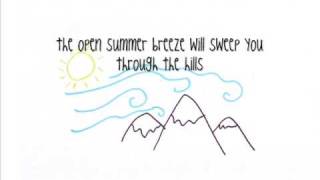 the open summer breeze will sweep you
through the hills